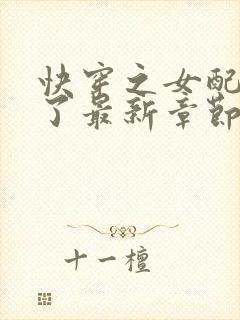 快穿之女配
了最新章節
十一檀